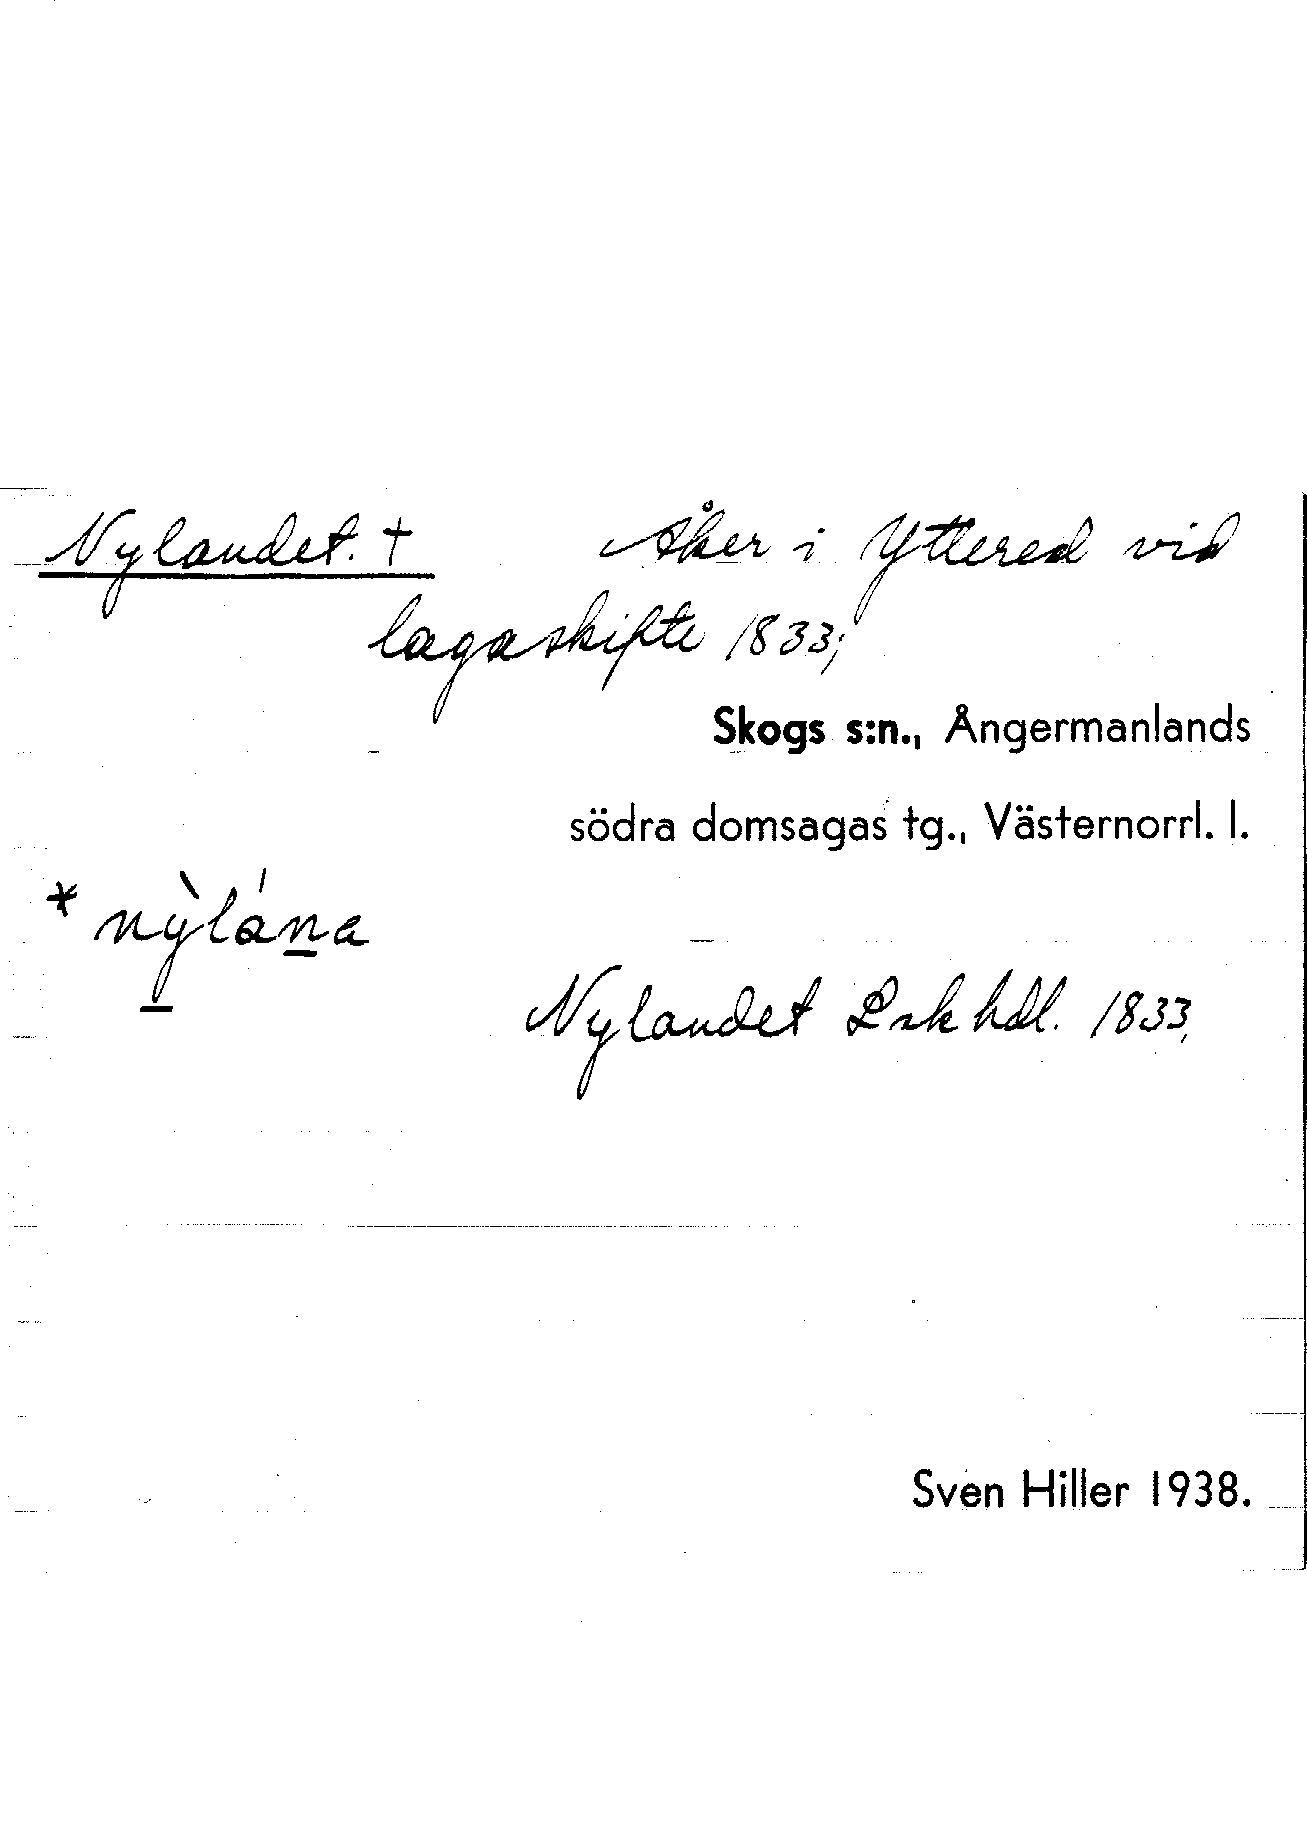 Nylandet. † Åker i Yttered vid
lagaskifte 1833;
Skogs s:n., Ångermanlands
södra domsagas tg., Västernorrl. l.
* nỳlána
Nylandet Lsk hdl. 1833,
Sven Hiller 1938.